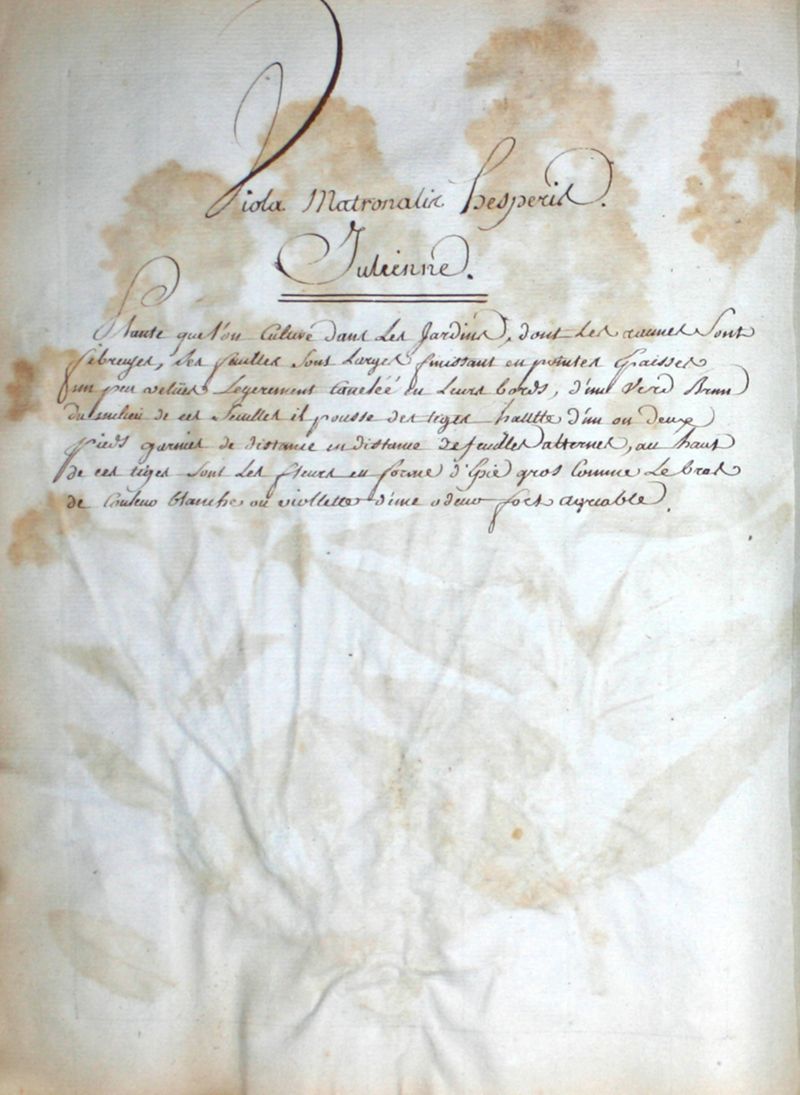 Viola Matronalis hesperis.
Julienne.
Plante que l'on Cultive dans Les Jardins, dont Les racines Sont
fibreuses, Ses feuilles Sont Larges finissant en pointes Epaisses
un peu velües Legerement en Leurs bords, d'une Verd Brun
du milieu de ces feuilles il pousse des tiges d'un ou deux
pieds garnies de distance en distance de feuilles alternes, au haut
de ces tiges sont Les fleurs en forme d'Epié gros Comme Le bras
de Couleur blanche ou viollette d'une odeur fort agréable.